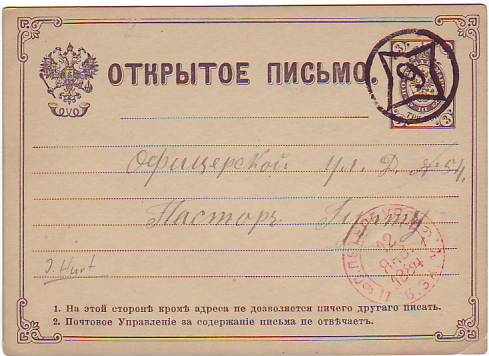 ОТКРЫТОЕ ПИСЬМО.
3
6
3
Офицерской ул. Д. № 54.
Пастору Гурту
12
ЯНВ.
1884
J. Hurt
1. На этой сторонѣ кромѣ адреса не дозволяется ничего другаго писать.
2. Почтовое Управленіе за содержаніе письма не отвѣчаетъ.